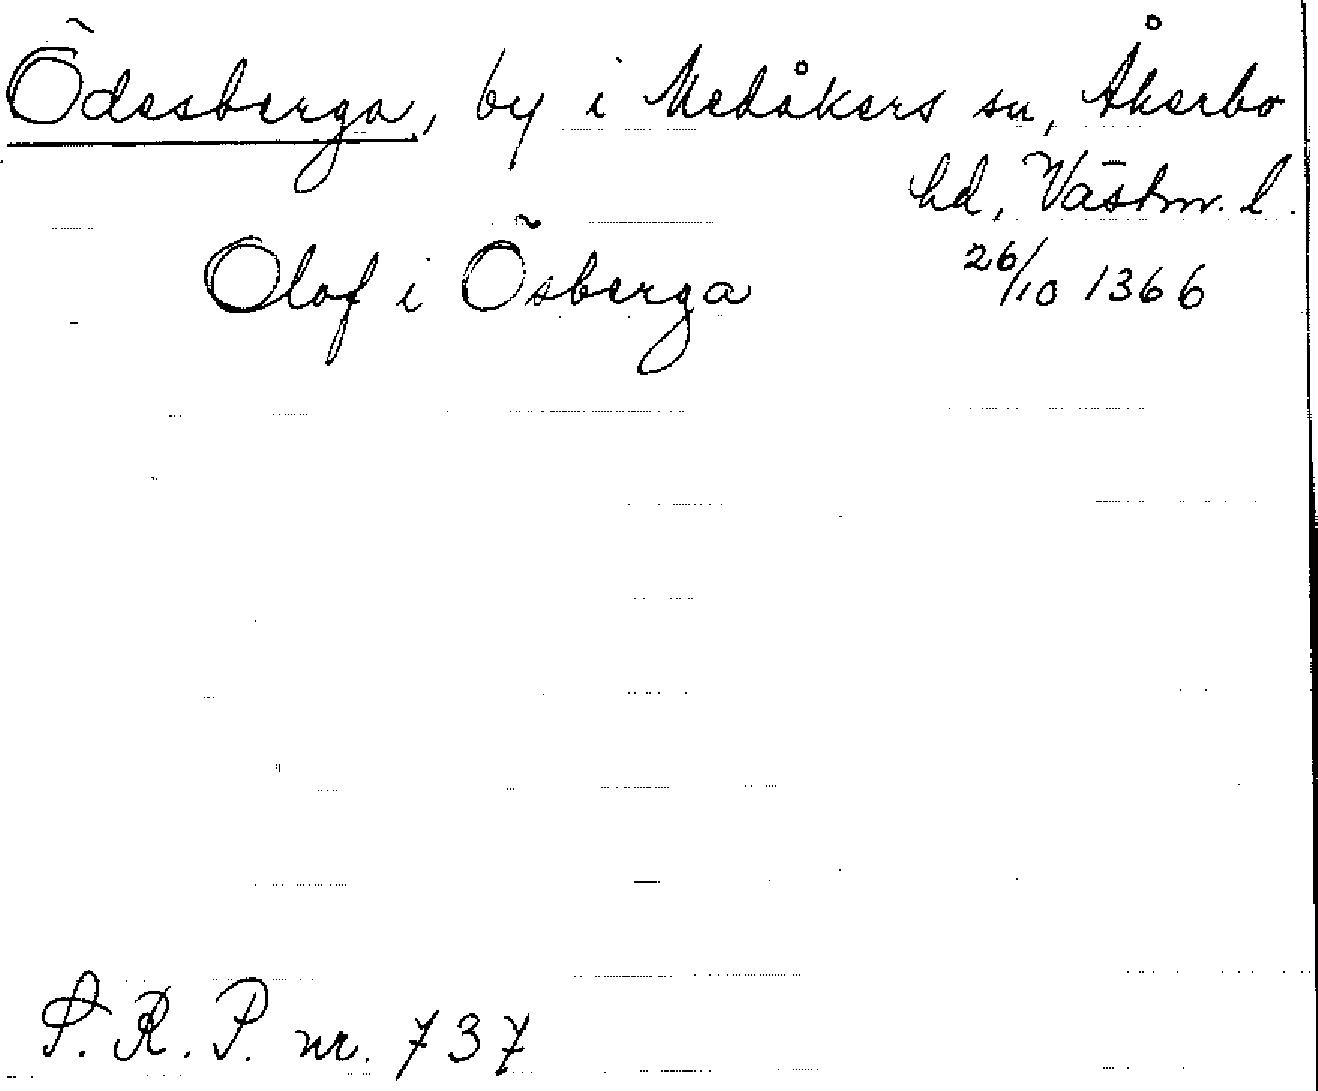 Ödesberga, by i Medåkers sn, Åkerbo
hd, Västm. l.
Olof i Ösberga 26/10 1366
S. R. P. nr. 737